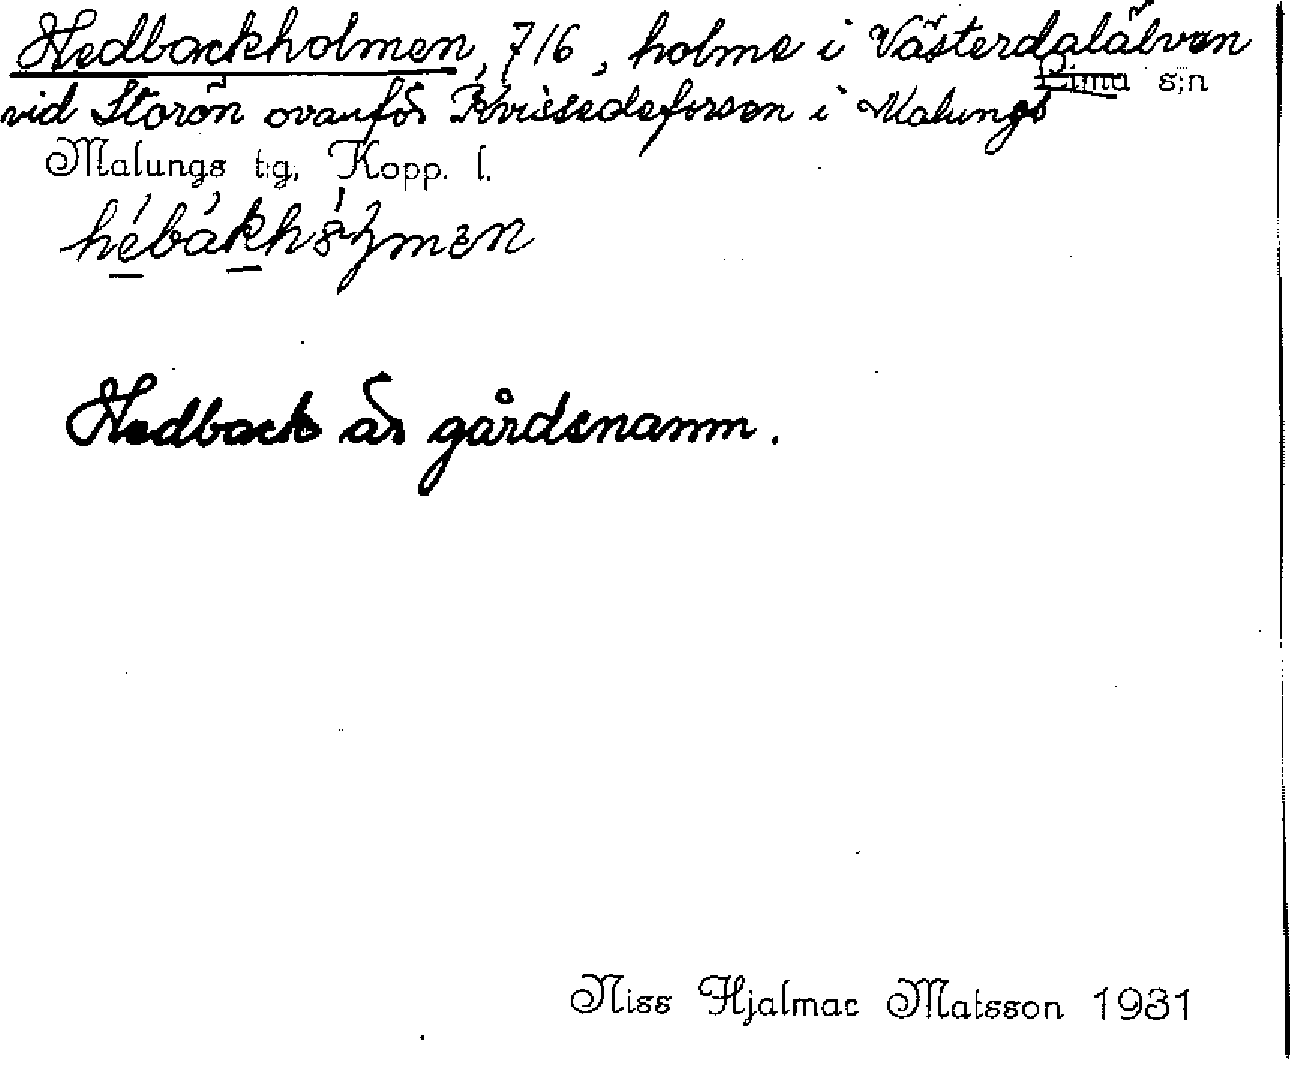 Hedbackholmen, 7/6, holme i Västerdalälven
Lima s:n
vid Storön ovanför Kvissedsforsen i Malungs
Malungs tg, Kopp. l.
Hedback är gårdsnamn.
Niss Hjalmar Matsson 1931